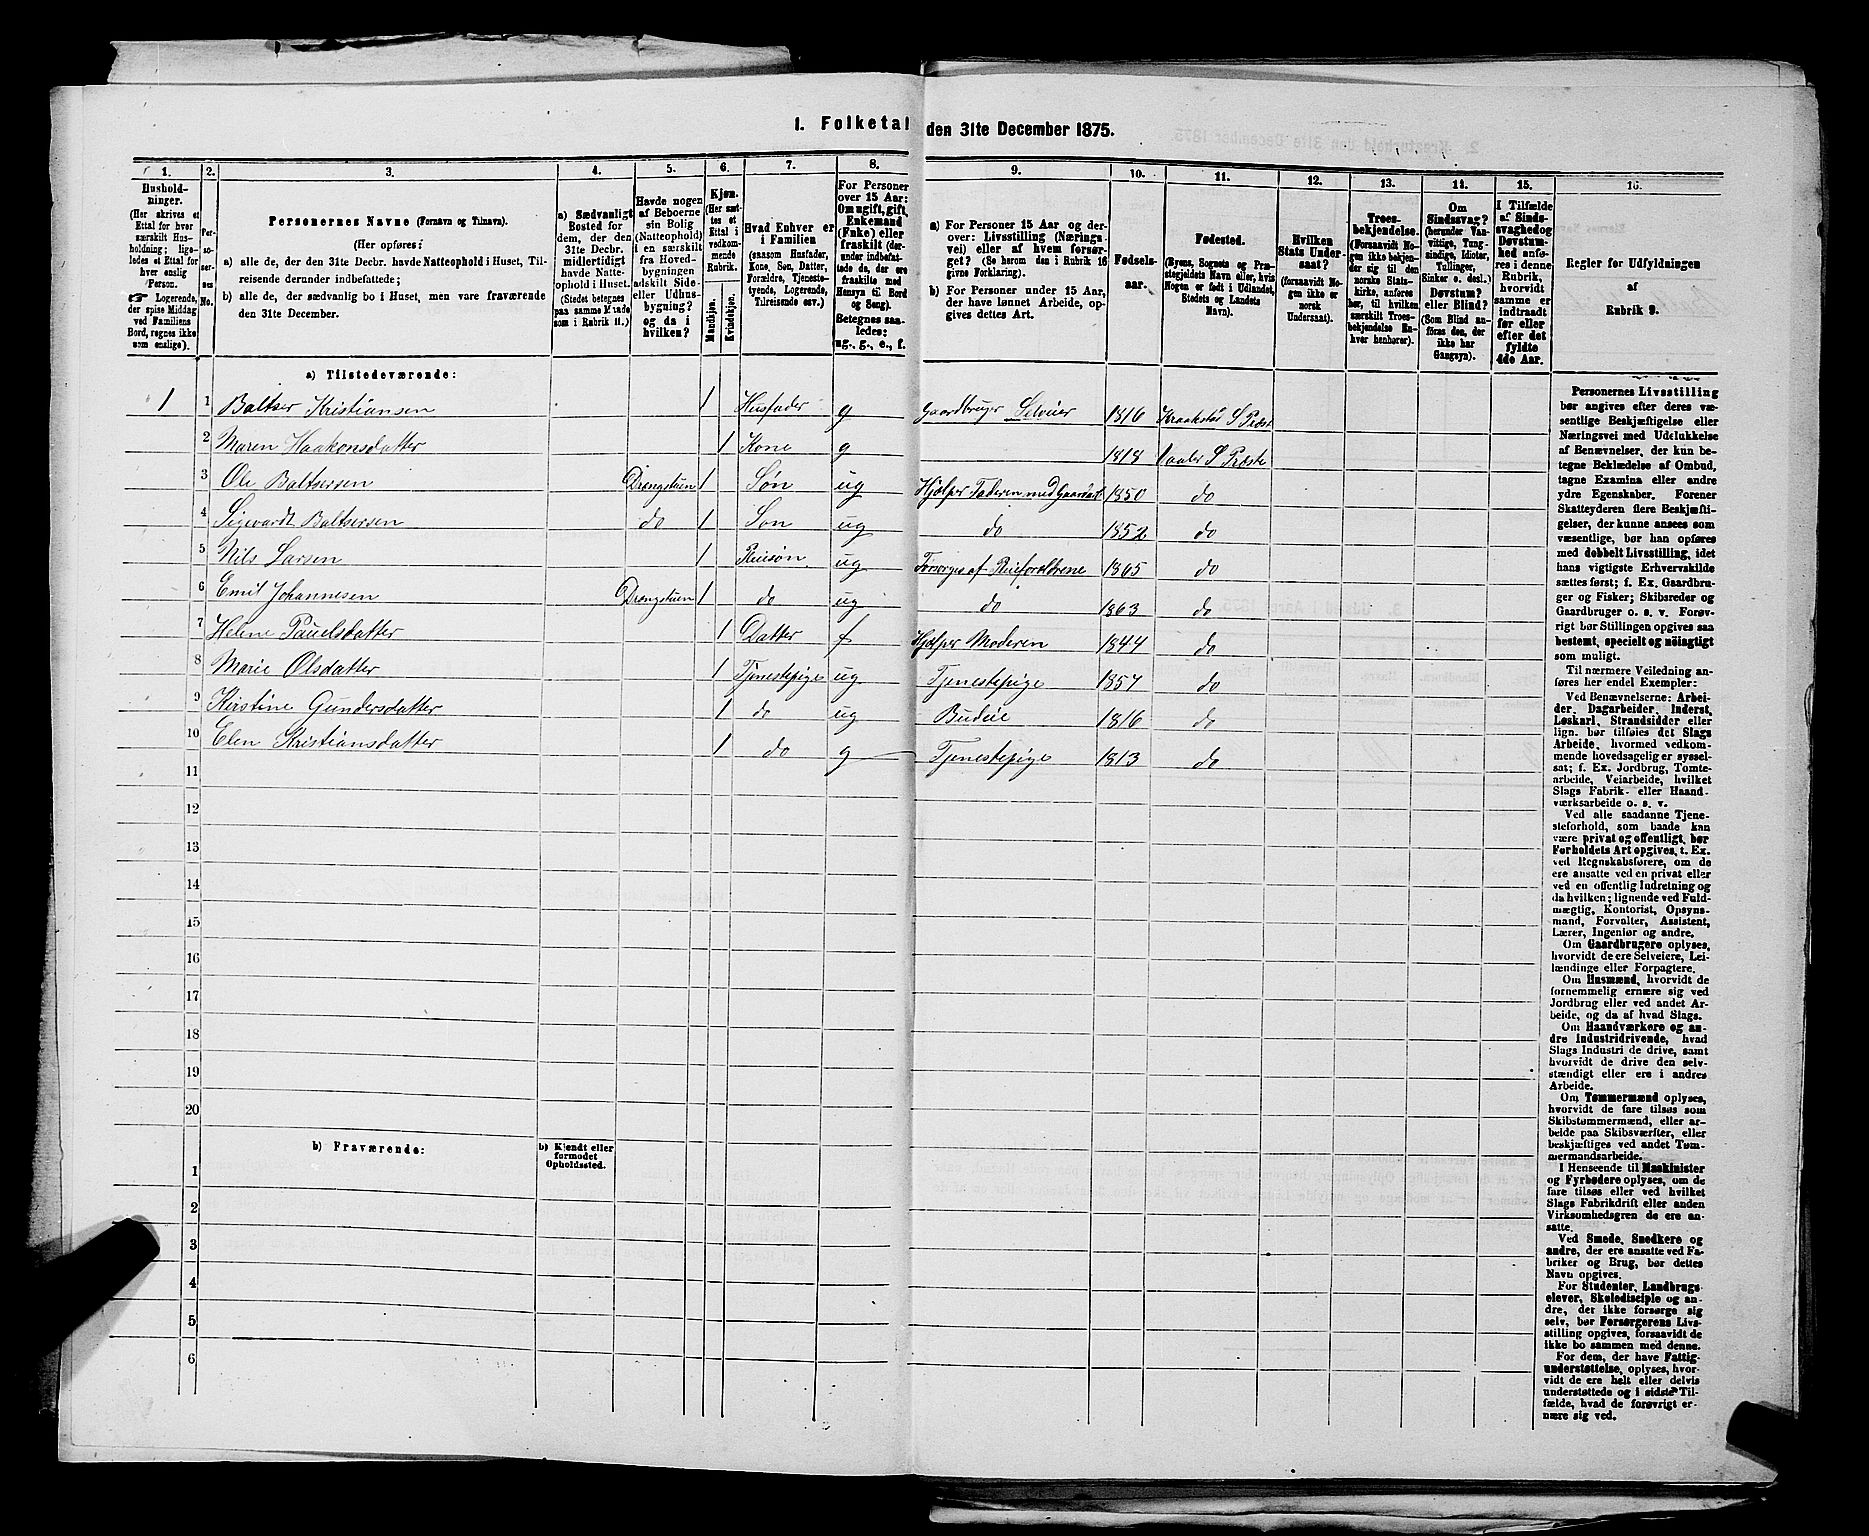 1. Folketal den 31te December 1875.
1. 2. 3. 4. 5. 6. 7. 8. 9. 10. 11. 12. 13. 14. 15. 16.
Hushold-
ninger.
(Her skrives et
Ettal for hver
særskilt Hus-
holdning; lige-
ledes et Ettal for
hver enslig
Person.
☛ Logerende,
der spise Middag
ved Familiens
Bord, regnes ikke
som enslige).
Per-
so-
ner-
nes
No.
Personernes Navne (Fornavn og Tilnavn).
(Her opføres:
a) alle de, der den 31te Decbr. havde Natteophold i Huset, Til-
reisende derunder indbefattede;
b) alle de, der sædvanlig bo i Huset, men vare fraværende
den 31te December.
a) Sædvanligt
Bosted for
dem, der den
31te Decbr.
midlertidigt
havde Natte-
ophold i Huset.
(Stedet betegnes
paa samme Maade
som i Rubrik 11.)
Havde nogen
af Beboerne
sin Bolig
(Natteophold)
i en særskilt
fra Hoved-
bygningen
adskilt Side-
eller Udhus-
bygning?
og da i
hvilken?
Kjøn.
(Her sæt-
tes et
Ettal i
vedkom-
mende
Rubrik.
Mandkjøn.
Kvindekjøn.
Hvad Enhver er
i Familien
(saasom Husfader,
Kone, Søn, Datter,
Forældre, Tjeneste-
tyende, Logerende,
Tilreisende osv.)
For Personer
over 15 Aar:
Om ugift, gift,
Enkemand
(Enke) eller
fraskilt (der-
under indbefat-
tede de, der ere
fraskilte med
Hensyn til Bord
og Seng).
Betegnes saa-
ledes:
ug., g., e., f.
a) For Personer 15 Aar og der-
over: Livsstilling (Nærings-
vei) eller af hvem forsør-
get? (Se herom den i Rubrik 16
givne Forklaring).
b) For Personer under 15 Aar,
der have lønnet Arbeide, op-
gives dettes Art.
Fødsels-
aar.
Fødested.
(Byens, Sognets og Præ-
stegjeldets Navn eller, hvis
Nogen er født i Udlandet,
Stedets og Landets
Navn).
Hvilken
Stats Under-
saat?
(forsaavidt No-
gen ikke er
norsk
Undersaat).
Troes-
bekjendelse.
(Forsaavidt No-
gen ikke bekjen-
der sig til den
norske Stats-
kirke, anføres
her, til hvilken
særskilt Troes-
bekjendelse En-
hver henhører).
Om
Sindssvag?
(herunder Van-
vittige, Tung-
sindige, Idioter,
Tullinger,
Sinker o. desl.)
Døvstum?
eller Blind?
(Som Blind an-
føres den, der
ikke har
Gangsyn).
I Tilfælde
af Sinds-
svaghed og
Døvstum-
hed anfø-
res i denne
Rubrik,
hvorvidt
samme er
indtraadt
før eller
efter det
fyldte
4de Aar.
Regler for Udfyldningen
af
Rubrik 9.
a) Tilstedeværende:
1 1 Baltser Kristiansen 1 Husfader g Gaardbruger Selveier 1816 Kraakstad S Præst
2 Maren Haakonsdatter 1 Kone g 1818 Vaaler S Præste
3 Ole Baltsersen Drengstuen 1 Søn ug Hjælper Faderen med Gaardarb 1850 do
4 Sigvardt Baltsersen do 1 Søn ug do 1852 do
5 Nils Larsen 1 Pleiesøn ug Forsørges af Pleieforældrene 1865 do
6 Emil Johannesen Drengstuen 1 do ug do 1863 do
7 Helene Pauelsdatter 1 Datter f Hjælper Moderen 1844 do
8 Marie Olsdatter 1 Tjenestepige ug Tjenestepige 1857 do
9 Kirstine Gundersdatter 1 do ug Budeie 1816 do
10 Elen Kristiansdatter 1 do g Tjenestepige 1813 do
11
12
13
14
15
16
17
18
19
20
b) Fraværende:
b) Kjendt eller
formodet
Opholdssted.
1
2
3
4
5
6
Personernes Livsstilling
bør angives efter deres væ-
sentlige Beskjæftigelse eller
Næringsvei med Udelukkelse
af Benævnelser, der kun be-
tegne Beklædelse af Ombud,
tagne Examina eller andre
ydre Egenskaber. Forener
Skatteyderen flere Beskjæfti-
gelser, der kunne ansees som
væsentlige, bør han opføres
med dobbelt Livsstilling, idet
hans vigtigste Erhvervskilde
sættes først; f. Ex. Gaardbru-
ger og Fisker; Skibsreder og
Gaardbruger o. s. v. Forøv-
rigt bør Stillingen opgives saa
bestemt, specielt og nøiagtigt
som muligt.
Til nærmere Veiledning an-
føres her endel Exempler:
Ved Benævnelserne: Arbei-
der, Dagarbeider, Inderst,
Løskarl, Strandsidder eller
lign. bør tilføies det Slags
Arbeide, hvormed vedkom-
mende hovedsagelig er syssel-
sat; f. Ex. Jordbrug, Tomte-
arbeide, Veiarbeide, hvilket
Slags Fabrik- eller Haand-
værksarbeide o. s. v.
Ved alle saadanne Tjene-
steforhold, som baade kan
være privat og offentligt, bør
Forholdets Art opgives, t. Ex.
ved Regnskabsførere, om de
ere ansatte ved en privat eller
ved en offentlig Indretning og
da hvilken; lignende ved Fuld-
mægtig, Kontorist, Opsyns-
mand, Forvalter, Assistent,
Lærer, Ingeniør og andre.
Om Gaardbrugere oplyses,
hvorvidt de ere Selveiere, Lei-
lændinge eller Forpagtere.
Om Husmænd, hvorvidt de
fornemmelig ernære sig ved
Jordbrug eller ved andet Ar-
beide, og da af hvad Slags.
Om Haandværkere og an-
dre Industridrivende, hvad
Slags Industri de drive, samt
hvorvidt de drive den selv-
stændigt eller ere i andres
Arbeide.
Om Tømmermænd oplyses,
hvorvidt de fare tilsøs som
Skibstømmermænd, eller ar-
beide paa Skibsværfter, eller
beskjæftiges ved andet Tøm-
mermandsarbeide.
I Henseende til Maskinister
og Fyrbødere oplyses, om de
fare tilsøs eller ved hvilket
Slags Fabrikdrift eller anden
Virksomhedsgren de ere an-
satte.
Ved Smede, Snedkere og
andre, der ere ansatte ved Fa-
briker og Brug, bør dettes
Navn opgives.
For Studenter, Landbrugs-
elever, Skoledisciple og an-
dre, der ikke forsørge sig
selv, bør Forsørgerens Livs-
stilling opgives, forsaavidt de
ikke bo sammen med denne.
For dem, der have Fattig-
understøttelse, oplyses, hvor-
vidt de ere helt eller delvis
understøttede og i sidste Til-
fælde, hvad de forøvrigt er-
nære sig ved.